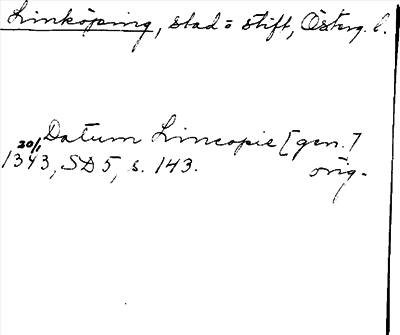 Linköping, stad = stift, Österg. l.
Datum Lincopie [gen.]
20/1 1343, SD 5, s. 143. orig.